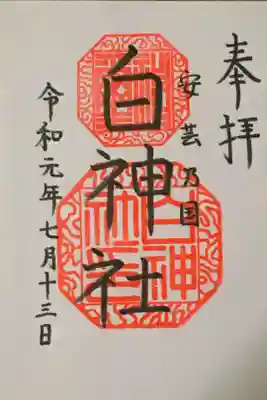 奉拝
安芸乃国
白神社
令和元年七月十三日